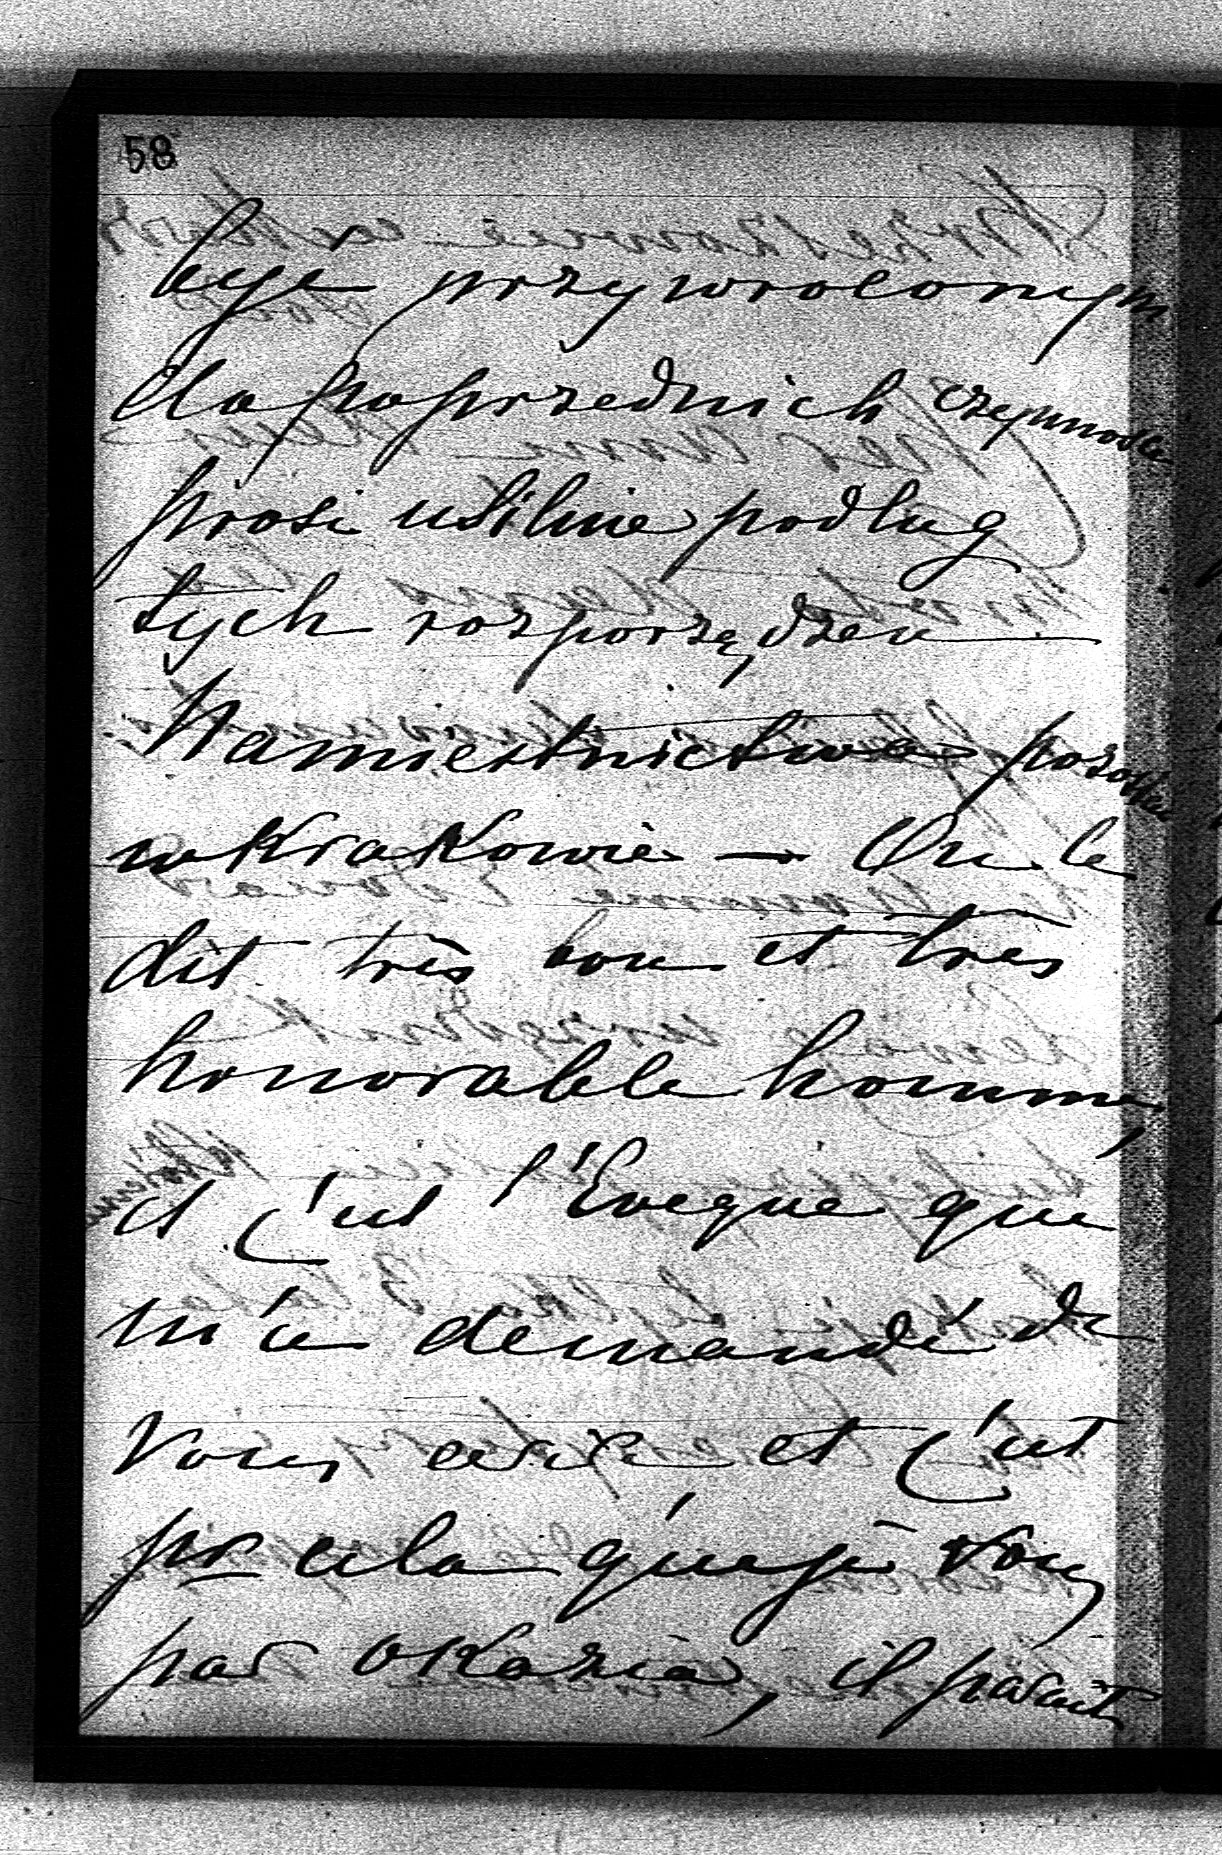 58
być przywróconym
do poprzednich czynności
prosi usilnie podług
tych rozporządzeń
Namiestnictwa pozostać
w Krakowie — On le
dit très bon et très
honorable homme,
et c'est l'Évêque que
m'a demandé de
vous écrire et c'est
pr cela que je vous
par okazia, il parait